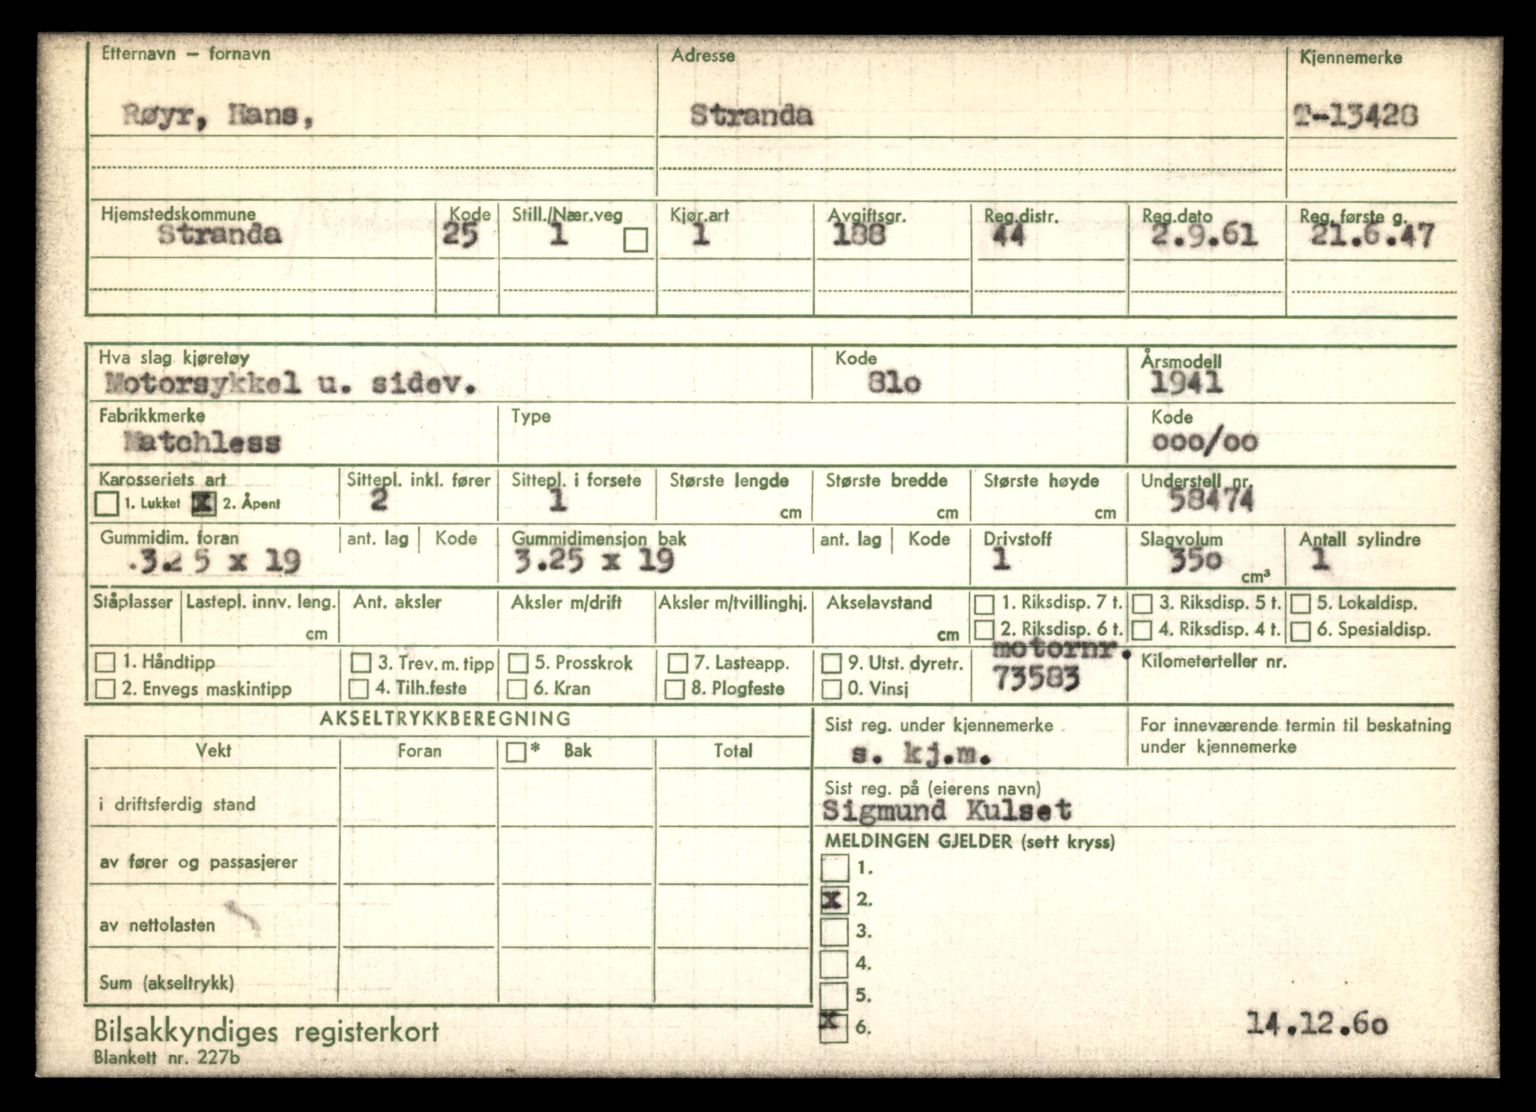 Etternavn – fornavn Adresse Kjennemerke
Røyr, Hans, Stranda T-13428
Hjemstedskommune Kode Still./Nær.veg Kjør.art Avgiftsgr. Reg.distr. Reg.dato Reg. første g.
Stranda 25 1 1 188 44 2.9.61 21.6.47
Hva slag kjøretøy Kode Årsmodell
Motorsykkel u. sidev. 81o 1941
Fabrikkmerke Type Kode
Matchless ooo/oo
Karosseriets art Sittepl. inkl. fører Sittepl. i forsete Største lengde Største bredde Største høyde Understell nr.
1. Lukket x 2. Åpent 2 1 cm cm cm 58474
Gummidim. foran ant. lag Kode Gummidimensjon bak ant. lag Kode Drivstoff Slagvolum Antall sylindre
.3.25 x 19 3.25 x 19 1 35o cm³ 1
Ståplasser Lastepl. innv. leng. Ant. aksler Aksler m/drift Aksler m/tvillinghj. Akselavstand 1. Riksdisp. 7 t. 3. Riksdisp. 5 t. 5. Lokaldisp.
cm cm 2. Riksdisp. 6 t. 4. Riksdisp. 4 t. 6. Spesialdisp.
motornr.
1. Håndtipp 3. Trev. m. tipp 5. Prosskrok 7. Lasteapp. 9. Utst. dyretr. Kilometerteller nr.
2. Envegs maskintipp 4. Tilh.feste 6. Kran 8. Plogfeste 0. Vinsj 73583
AKSELTRYKKBEREGNING Sist reg. under kjennemerke For inneværende termin til beskatning
under kjennemerke
Vekt Foran * Bak Total s. kj.m.
Sist reg. på (eierens navn)
i driftsferdig stand Sigmund Kulset
MELDINGEN GJELDER (sett kryss)
av fører og passasjerer 1.
x 2.
av nettolasten 3.
4.
Sum (akseltrykk) 5.
x 6. 14.12.6o
Bilsakkyndiges registerkort
Blankett nr. 227b